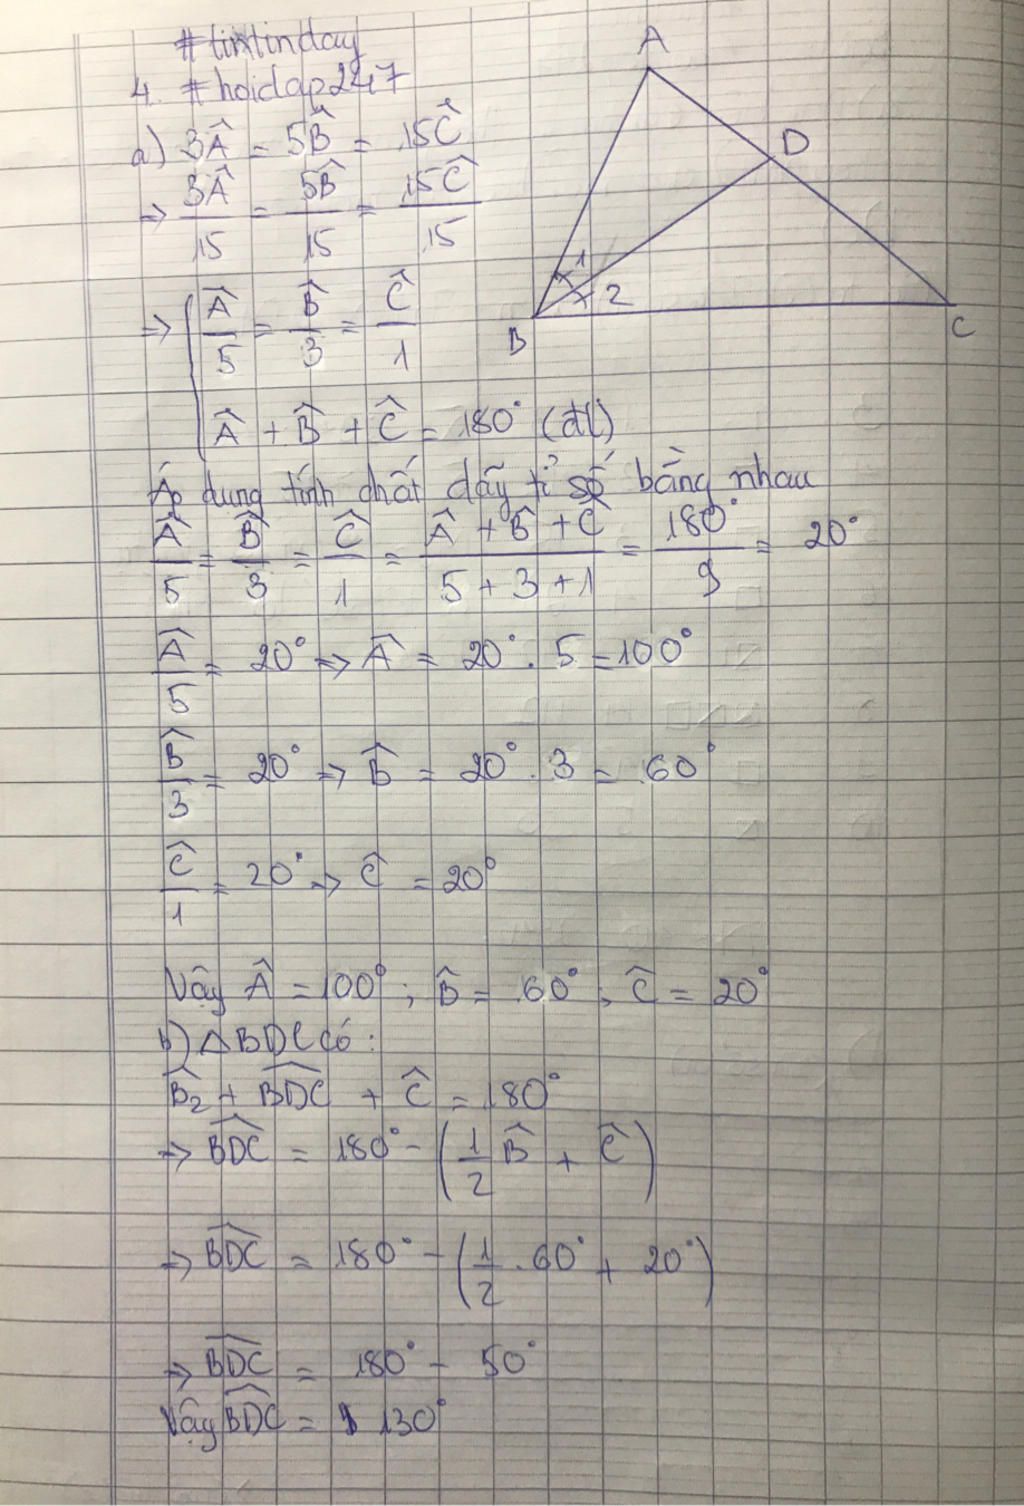 #tintinday
4. #hoidap247
a) 3Â = 5B̂ = 15Ĉ
=> 3Â/15 = 5B̂/15 = 15Ĉ/15
=> { Â/5 = B̂/3 = Ĉ/1
Â + B̂ + Ĉ = 180° (đl)
Áp dụng tính chất dãy tỉ số bằng nhau
Â/5 = B̂/3 = Ĉ/1 = (Â + B̂ + Ĉ)/(5 + 3 + 1) = 180°/9 = 20°
Â/5 = 20° => Â = 20° . 5 = 100°
B̂/3 = 20° => B̂ = 20° . 3 = 60°
Ĉ/1 = 20° => Ĉ = 20°
Vậy Â = 100° ; B̂ = 60° ; Ĉ = 20°
b) △BDC có :
B̂₂ + BDC^ + Ĉ = 180°
=> BDC^ = 180° - (1/2 B̂ + Ĉ)
=> BDC^ = 180° - (1/2 . 60° + 20°)
=> BDC^ = 180° - 50°
Vậy BDC^ = 130°
A
D
1
2
B
C